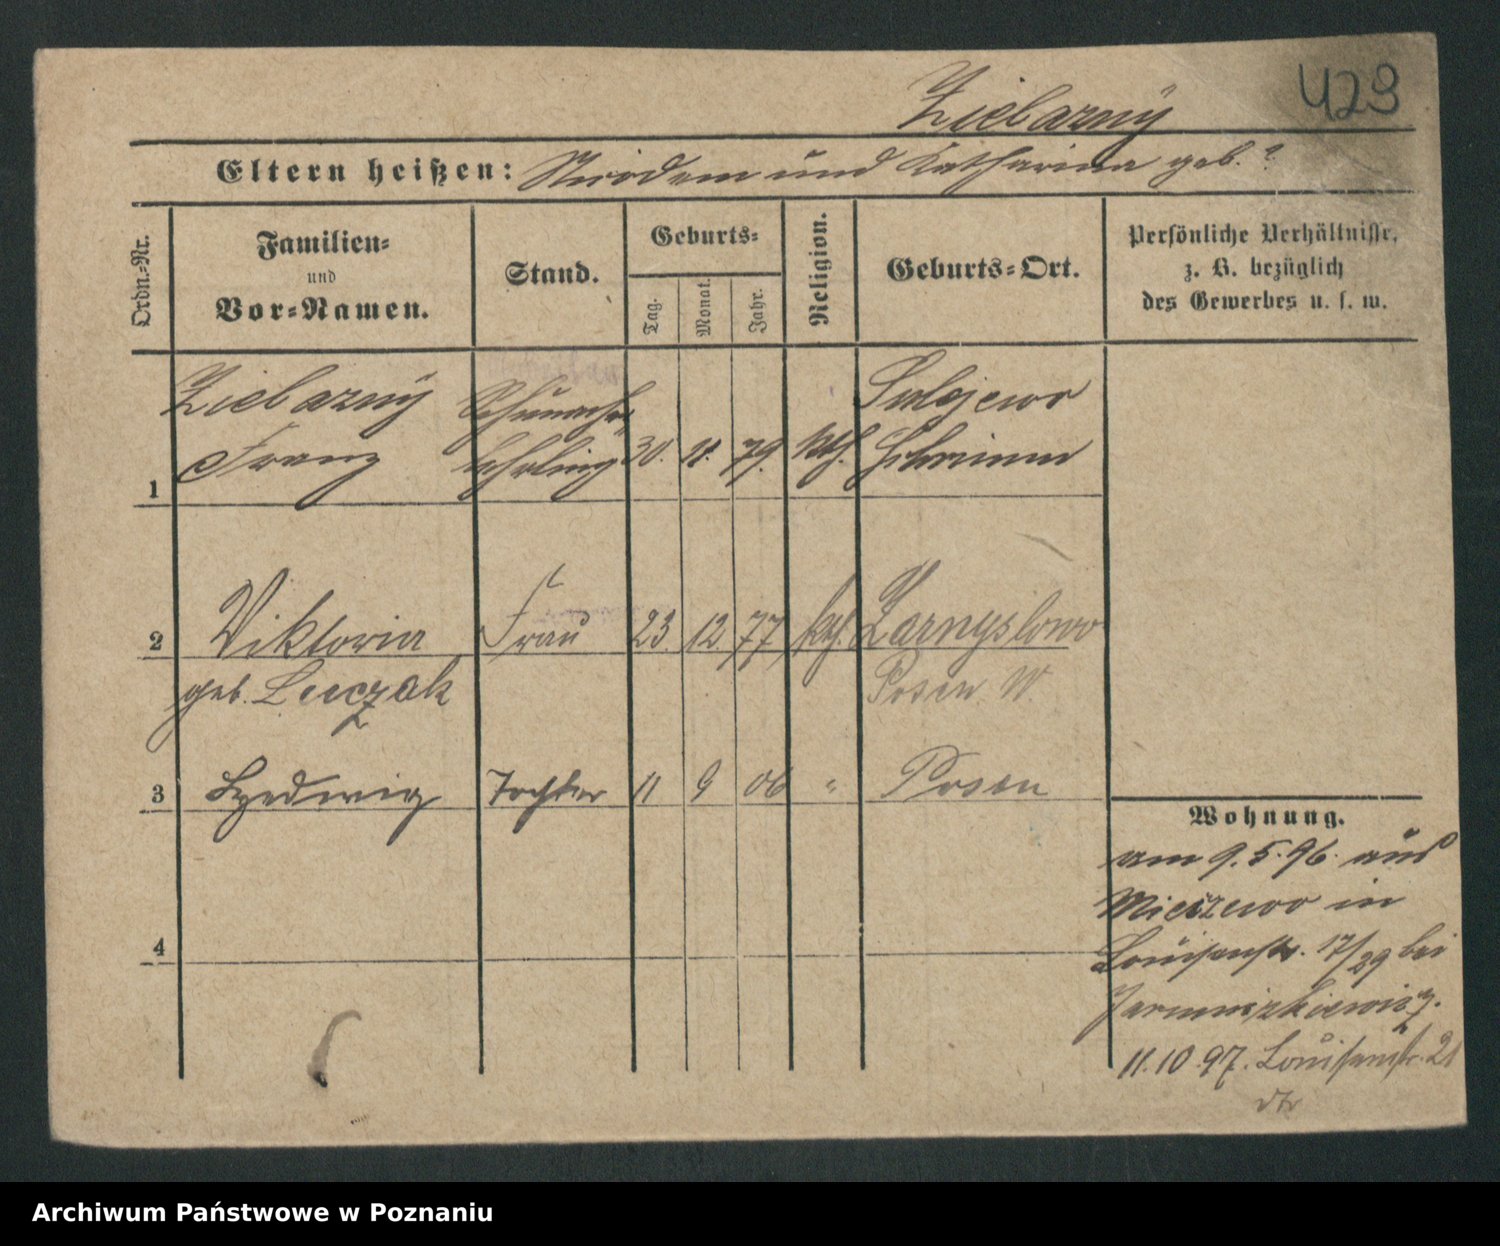 423
Zielazny
Eltern heißen: Nicodem und Katharina geb. ?
Ordn.-Nr.
Familien-
und
Vor-Namen.
Stand.
Geburts-
Tag.
Monat.
Jahr.
Religion.
Geburts-Ort.
Persönliche Verhältnisse,
z. B. bezüglich
des Gewerbes u. s. w.
1
Franz
lehrling
30. 11. 79. kth.
Schrimm
2
Viktoria
Frau
23. 12. 77 kth.
geb. Luczak
Posen W.
3
Hedwig
Tochter
11 9 06 "
Posen
4
Wohnung.
am 9.5.96. aus
in
Louisenstr. 17/29 bei
11.10.97. Louisenstr. 21
Archiwum Państwowe w Poznaniu